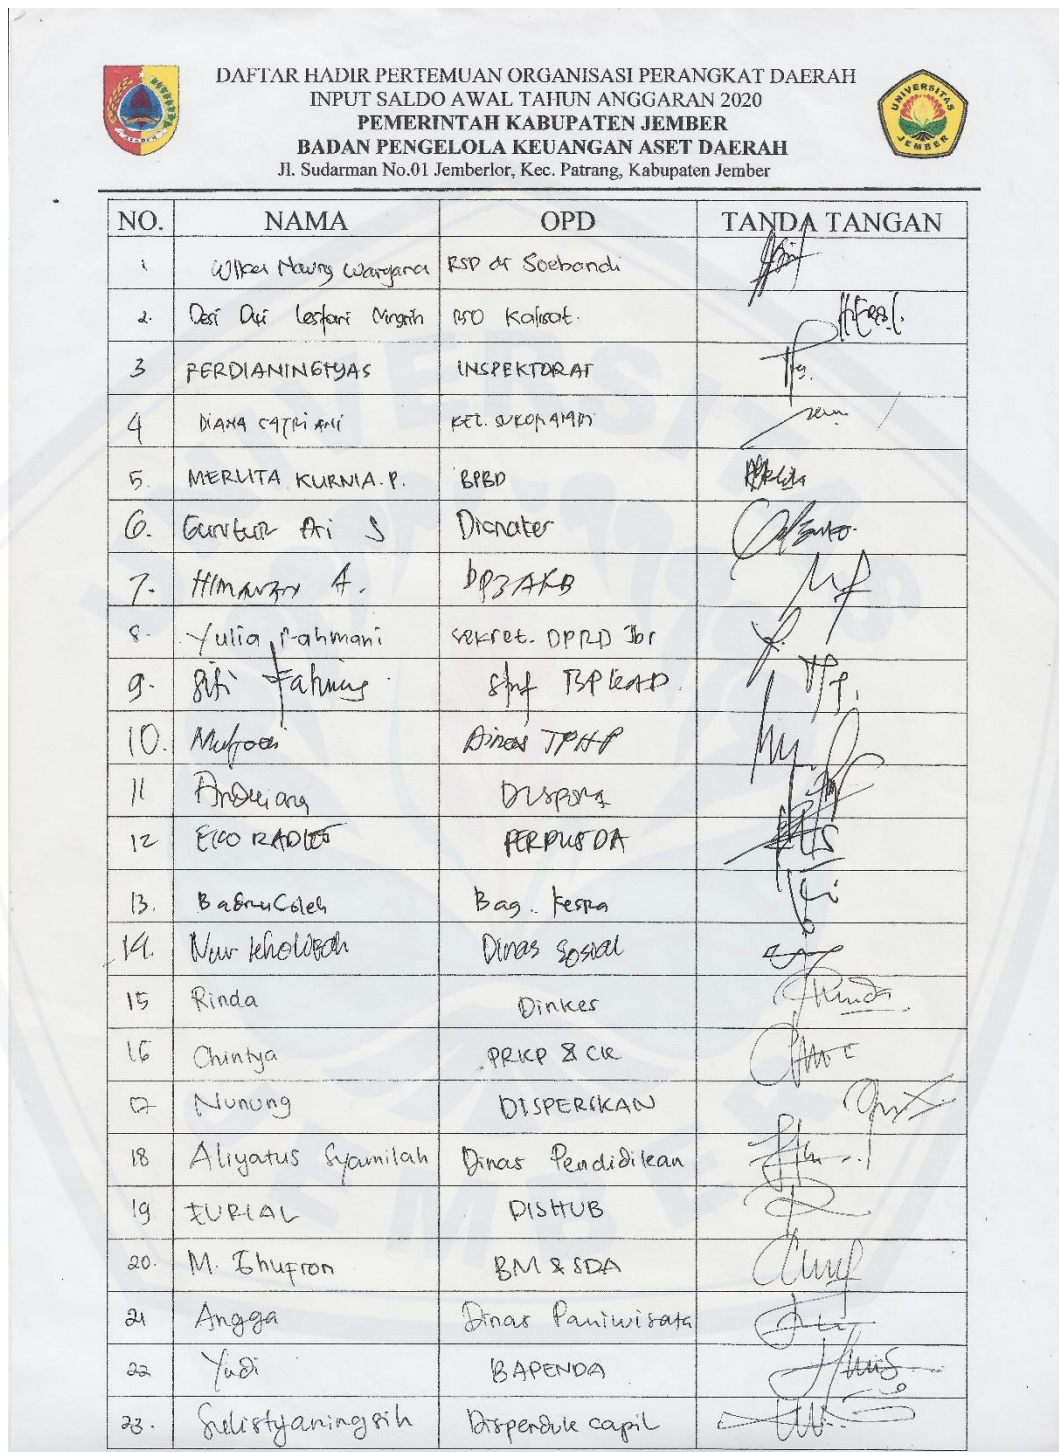 DAFTAR HADIR PERTEMUAN ORGANISASI PERANGKAT DAERAH
INPUT SALDO AWAL TAHUN ANGGARAN 2020
PEMERINTAH KABUPATEN JEMBER
BADAN PENGELOLA KEUANGAN ASET DAERAH
Jl. Sudarman No.01 Jemberlor, Kec. Patrang, Kabupaten Jember
JEMBER
UNIVERSITAS JEMBER
NO. NAMA OPD TANDA TANGAN
1 Wargana RSD dr Soebandi
2. Desi Dwi Lestari Ningsih RSD Kalisat.
3 FERDIANINGTYAS INSPEKTORAT
4 DIANA KEL.
5. MERLITA KURNIA.P. BPBD
6. Guntur Ari S Disnaker
7. HIMAWAN A. DP3AKB
8. Yulia Rahmani Sekret. DPRD Jbr
9. Siti Staf BPKAD
10. Dinas TPHP
11 Andriana Dispora
12 EKO PERPUSDA
13. Bag. Kesra
14. Nur Kholifah Dinas Sosial
15 Rinda Dinkes
16 Chintya PRKP & CK
17 Nunung DISPERIKAN
18 Aliyatus Syamilah Dinas Pendidikan
19 DISHUB
20. M. Ghufron BM & SDA
21 Angga Dinas Pariwisata
22 Yudi BAPENDA
23. Sulistyaningsih Dispenduk capil